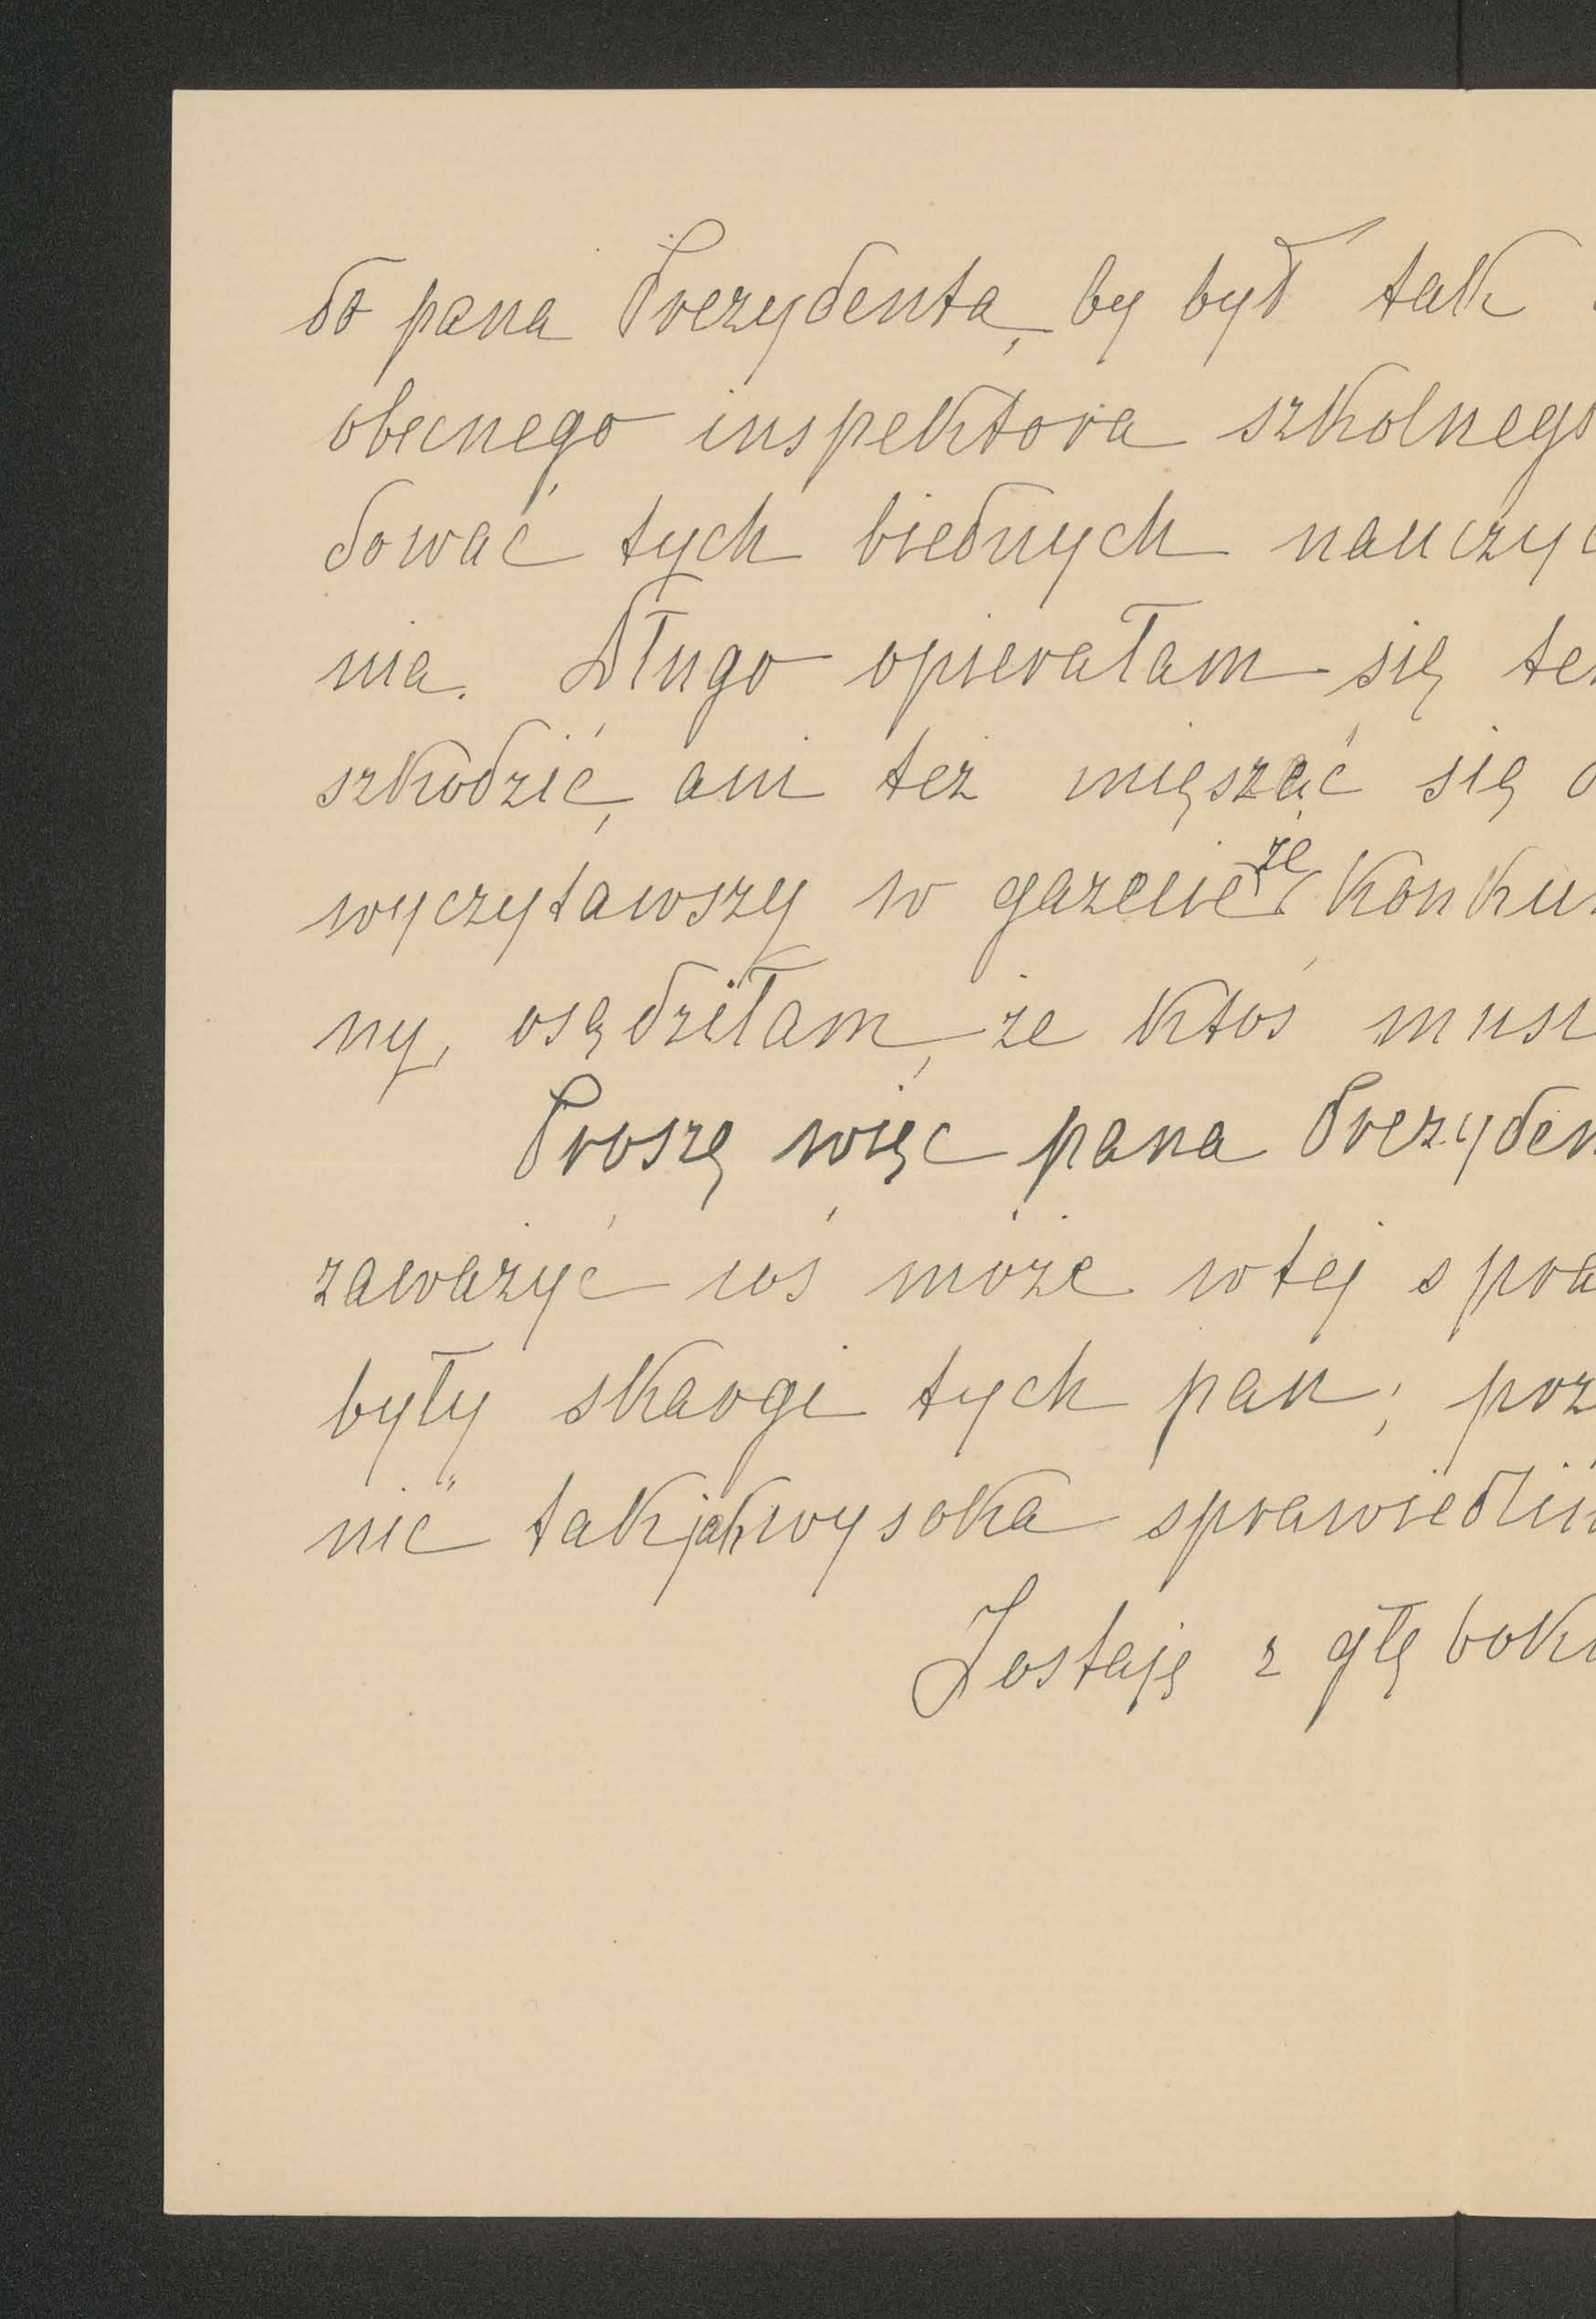 do pana Prezydenta, by był tak
obecnego inspektora szkolnego
dować tych biednych nauczyc
nia. Długo opierałam się te
szkodzić, ani też mięszać się
wyczytawszy w gazecie że konku
ny, osądziłam, że ktoś musi
Proszę więc pana Prezyden
zaważyć coś może w tej spra
były skargi tych pań; poz
nić tak jak wysoka sprawiedliw
Zostaję z głębok